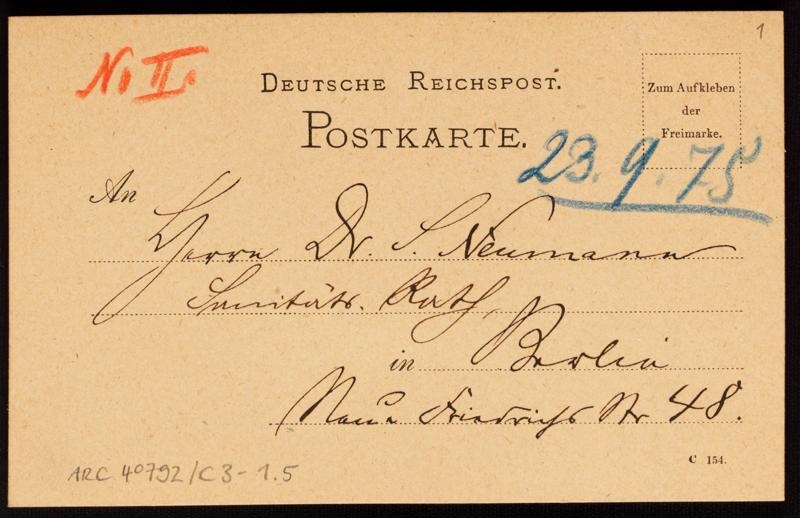 1
No II.
DEUTSCHE REICHSPOST.
POSTKARTE.
Zum Aufkleben
der
Freimarke.
23.9.75
An
Herrn Dr. S. Neumann
Sanitäts-Rath,
in Berlin
Neue Friedrichs Str 48.
C 154.
ARC 4° 792/C3-1.5